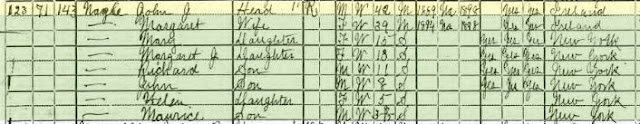 123 71 143 Naghe John J Head R M W 42 M 1889 Na 1898 Yes Yes Ireland
— Margaret Wife F W 39 M 1894 Na 1898 Yes Yes Ireland
— Mary Daughter F W 15 S Yes Yes Yes New York
— Margaret J Daughter F W 13 S Yes Yes Yes New York
— Richard Son M W 11 S Yes Yes Yes New York
— John Son M W 8 S Yes New York
— Helen Daughter F W 5 S New York
— Maurice Son M W S New York